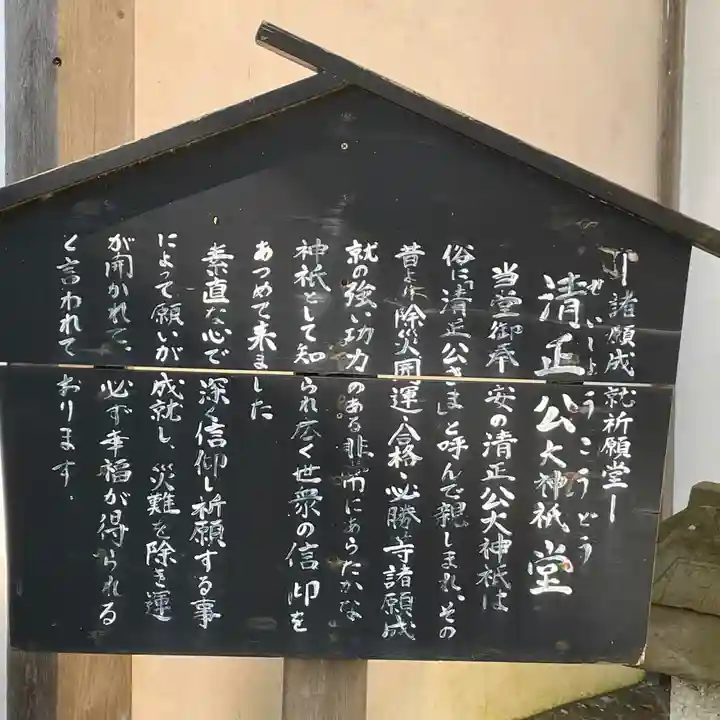 ―諸願成就祈願堂―
せいしょうこうどう
清正公大神祇堂
当堂御奉安の清正公大神祇は
俗に「清正公さま」と呼んで親しまれ、その
昔より除災開運、合格、必勝等諸願成
就の強い功力のある非常にあらたかな
神祇として知られ広く世衆の信仰を
あつめて来ました
素直な心で深く信仰し祈願する事
によって願いが成就し、災難を除き運
が開かれて、必ず幸福が得られる
と言われております.